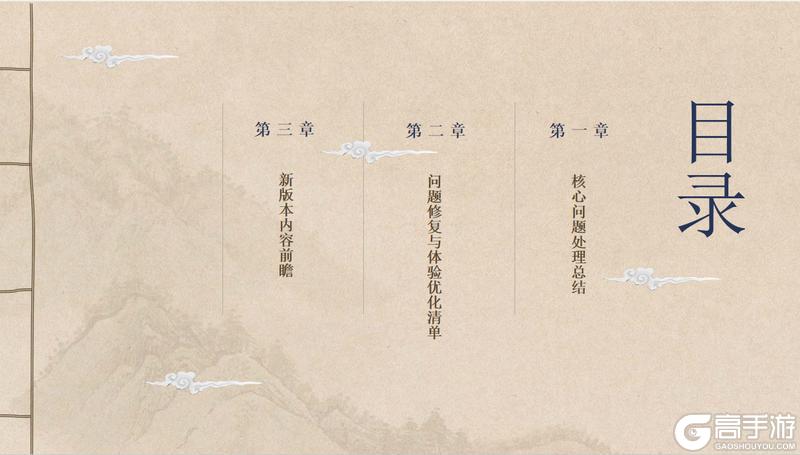 目录
第一章
核心问题处理总结
第二章
问题修复与体验优化清单
第三章
新版本内容前瞻
高手游
GAOSHOUYOU.COM